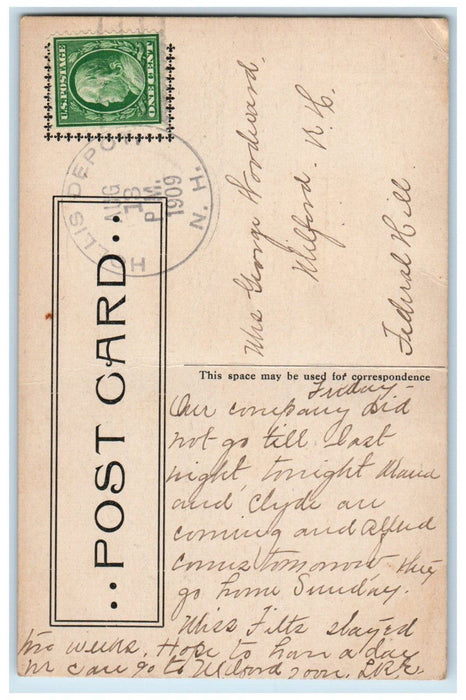 U.S. POSTAGE
ONE CENT
HOLLIS DEPOT N.H.
AUG
13
P.M.
1909
POST CARD
Mrs George Woodward.
Milford. N.H.
Federal Hill
This space may be used for correspondence
Friday-
Our company did
not go till last
night, tonight Maud
and Clyde are
coming and Alfred
comes tomorrow they
go home Sunday.
Miss Filts stayed
two weeks. Hope to have a day
we can go to Milford soon. L.R.E.